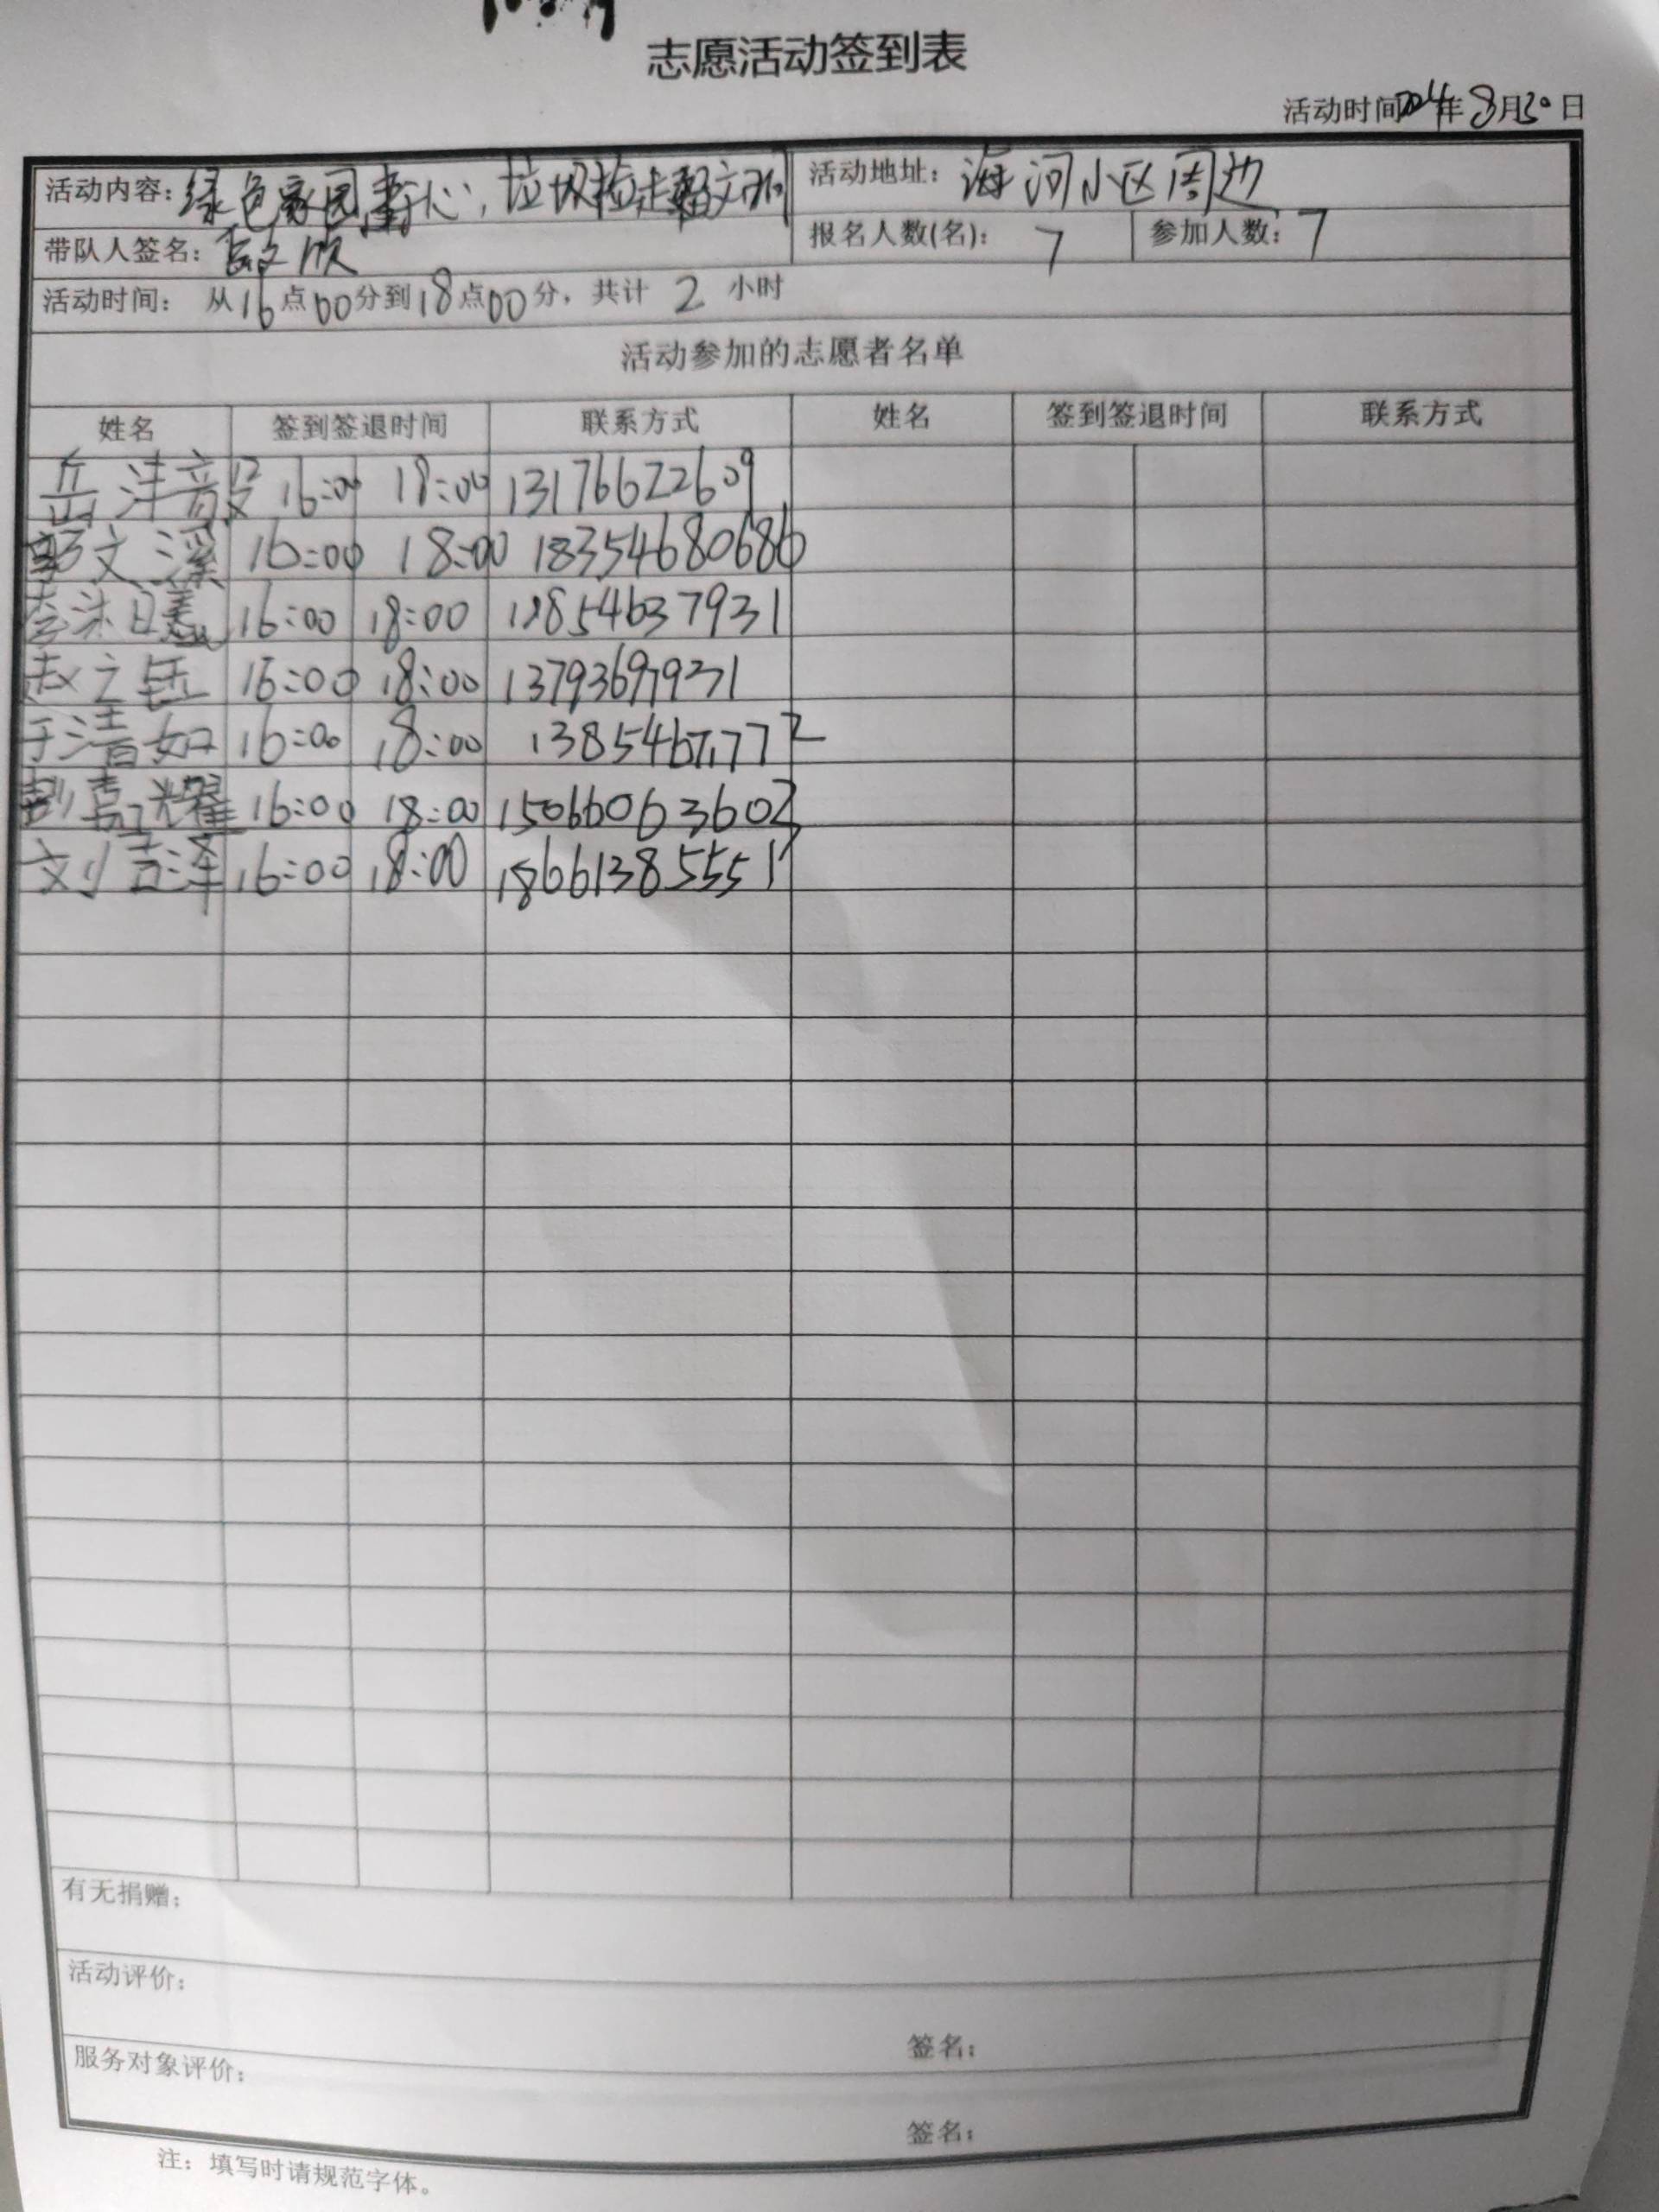 志愿活动签到表
活动时间2024年8月30日
活动内容:绿色家园 心,垃圾捡走 文明
活动地址:海河小区周边
带队人签名: 欣
报名人数(名):7 参加人数:7
活动时间: 从16点00分到18点00分,共计 2 小时
活动参加的志愿者名单
姓名 签到签退时间 联系方式 姓名 签到签退时间 联系方式
岳沣 16:00 18:00 13176622609
郭文溪 16:00 18:00 18354680686
李沫曦 16:00 18:00 18854637931
赵之钰 16:00 18:00
于清如 16:00 18:00
彭嘉耀 16:00 18:00 15066063602
刘孟泽 16:00 18:00 18661385551
有无捐赠:
活动评价:
签名:
服务对象评价:
签名:
注:填写时请规范字体。